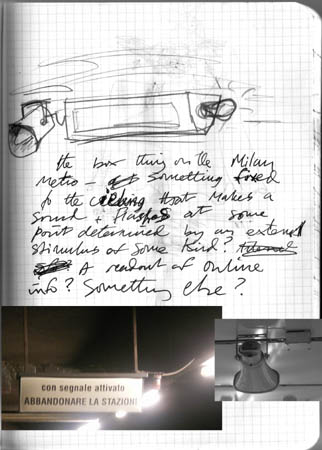 the box thing on the Milan
Metro – something fixed
to the ceiling that makes a
sound + flashes at some
point determined by an external
stimulus of some kind?
A readout of online
info? Something else?
con segnale attivato
ABBANDONARE LA STAZION